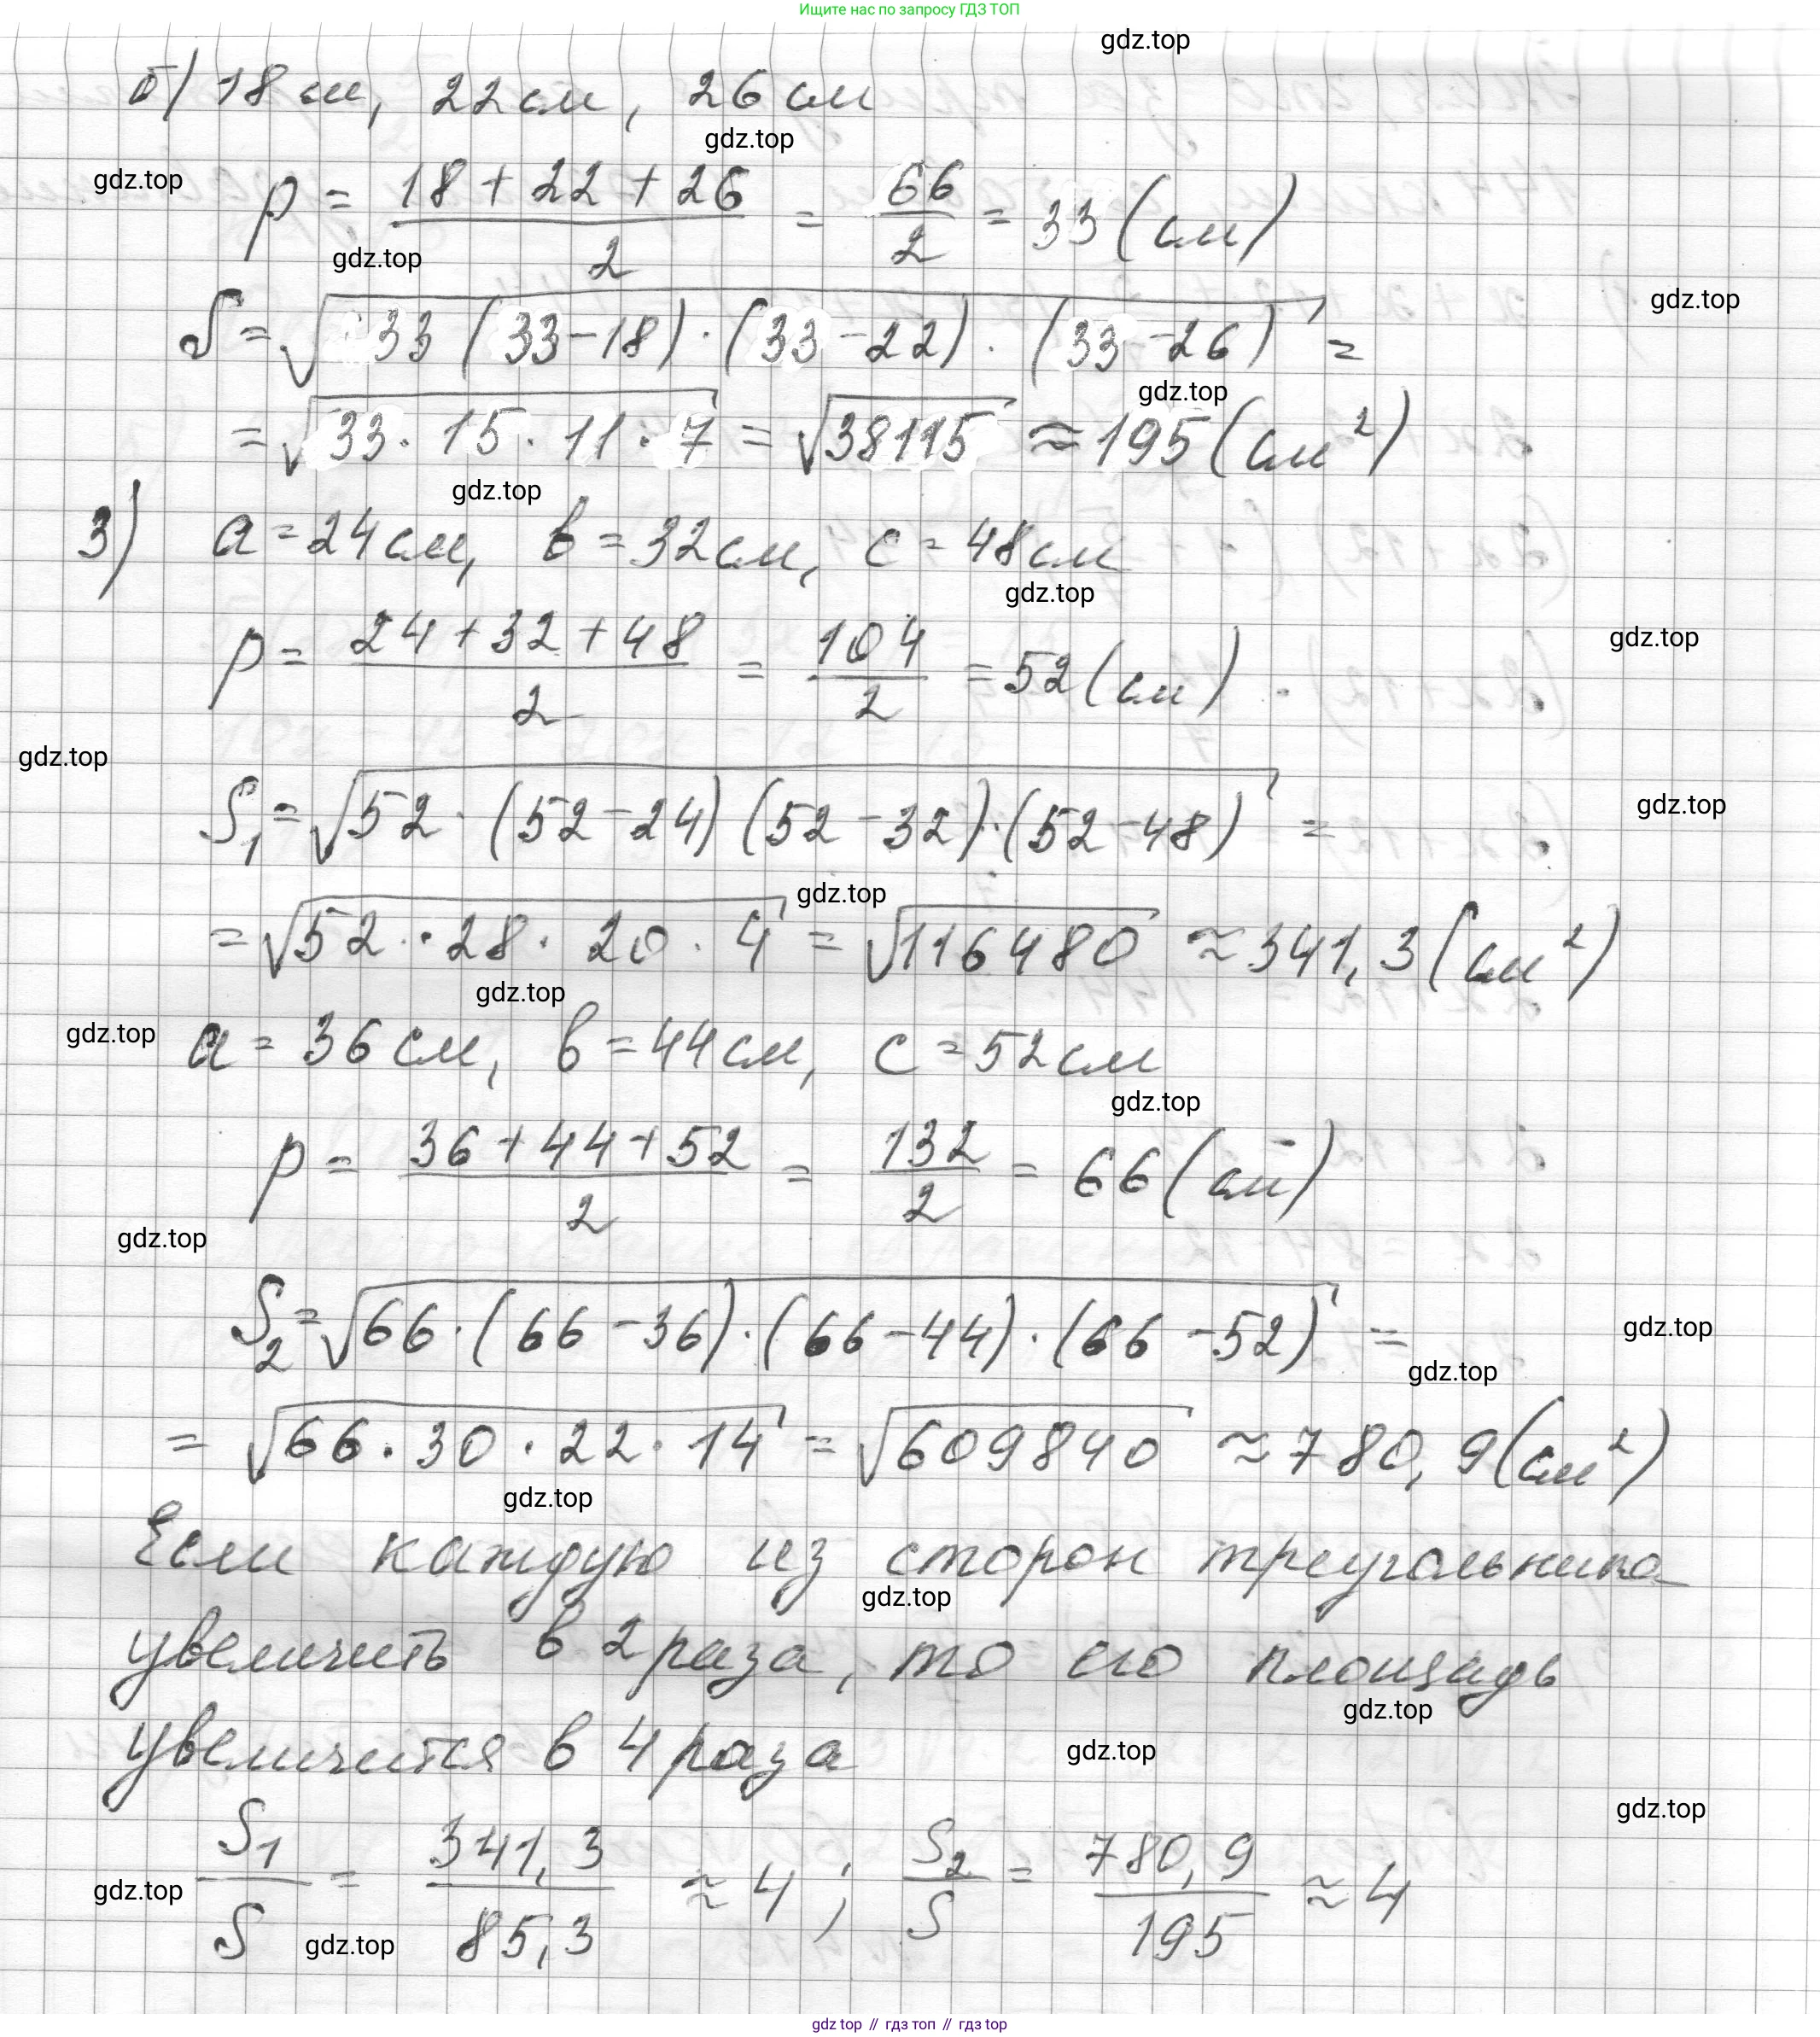 Ищите нас по запросу ГДЗ ТОП
gdz.top
б) 18 см, 22 см, 26 см
gdz.top
gdz.top
p = (18 + 22 + 26)/2 = 66/2 = 33 (см)
gdz.top
gdz.top
S = √(33 (33 - 18) · (33 - 22) · (33 - 26)) =
gdz.top
= √(33 · 15 · 11 · 7) = √38115 ≈ 195 (см²)
gdz.top
3) a = 24 см, в = 32 см, c = 48 см
gdz.top
p = (24 + 32 + 48)/2 = 104/2 = 52 (см)
gdz.top
gdz.top
S₁ = √(52 · (52 - 24) (52 - 32) · (52 - 48)) =
gdz.top
gdz.top
= √(52 · 28 · 20 · 4) = √116480 ≈ 341,3 (см²)
gdz.top
gdz.top
a = 36 см, в = 44 см, c = 52 см
gdz.top
p = (36 + 44 + 52)/2 = 132/2 = 66 (см)
gdz.top
S₂ = √(66 · (66 - 36) · (66 - 44) · (66 - 52)) =
gdz.top
gdz.top
= √(66 · 30 · 22 · 14) = √609840 ≈ 780,9 (см²)
gdz.top
Если каждую из сторон треугольника
gdz.top
увеличить в 2 раза, то его площадь
gdz.top
увеличится в 4 раза
gdz.top
gdz.top
S₁/S = 341,3/85,3 ≈ 4; S₂/S = 780,9/195 ≈ 4
gdz.top
gdz.top
gdz.top // гдз топ // гдз.top